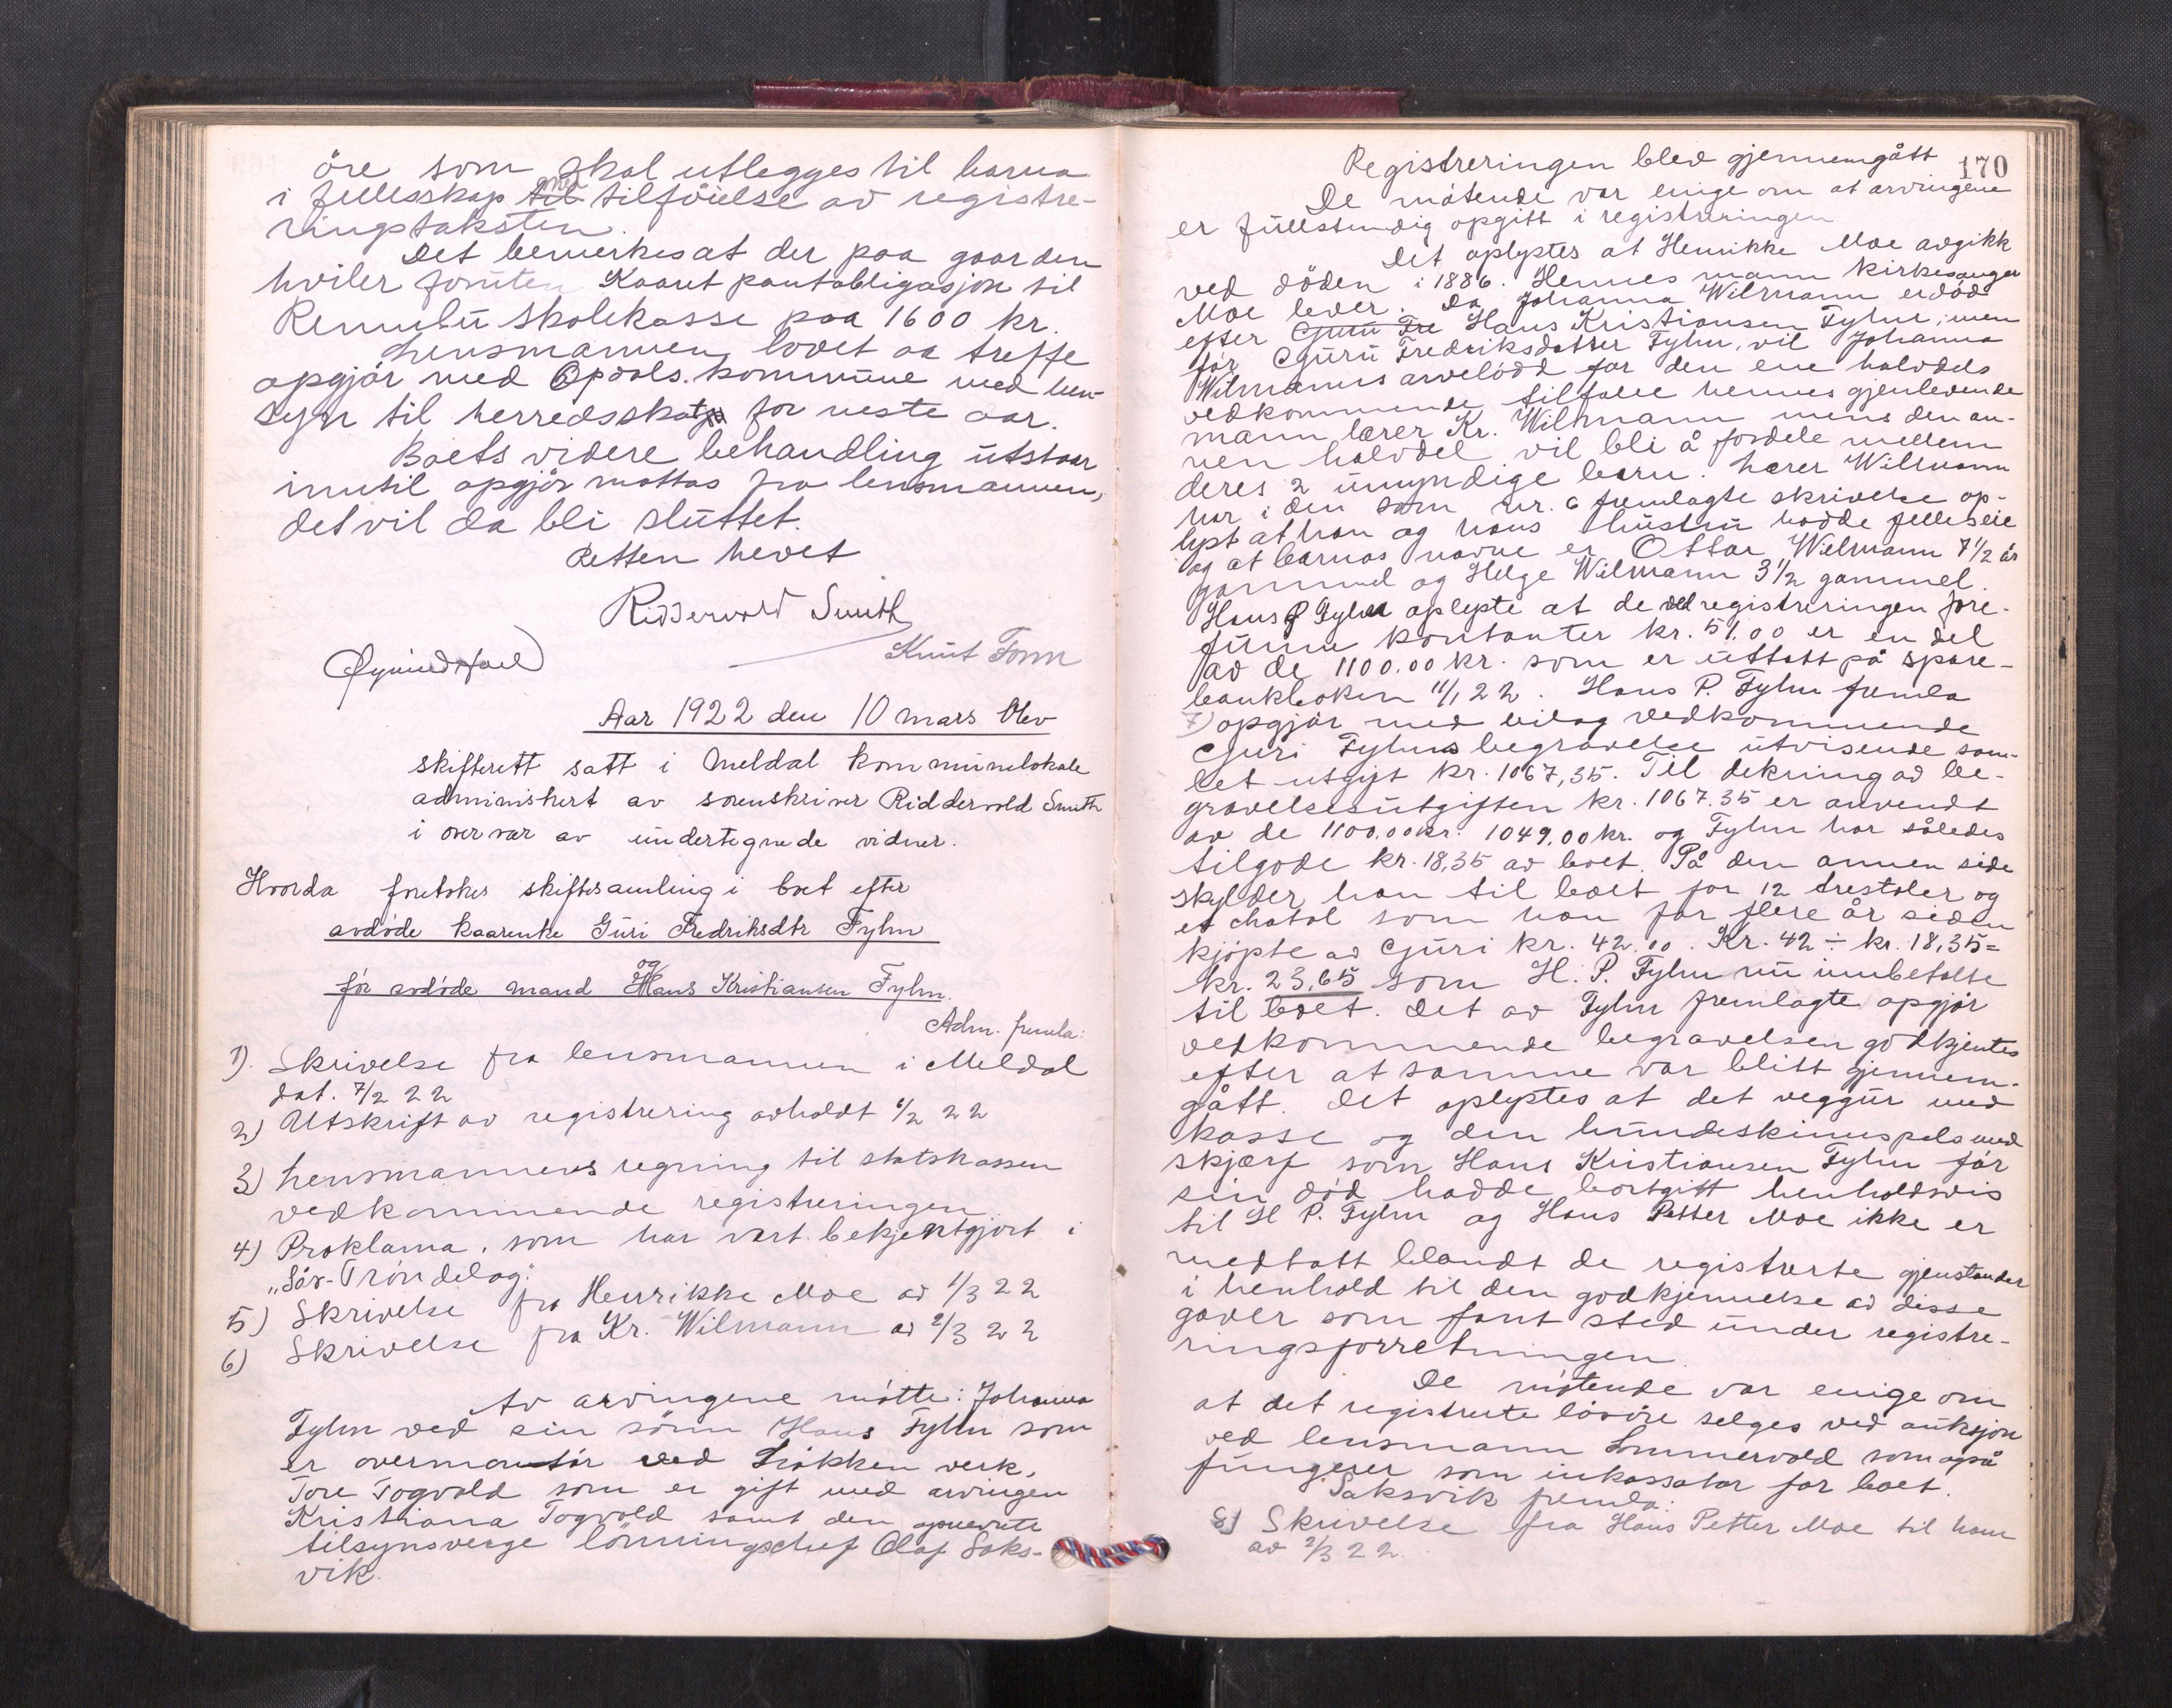 öre som skal utlegges til barna
i fellesskap til med tilföielse av registre-
ringstaksten.
Det bemerkes at der paa gaarden
hviler foruten Kaaret pantobligasjon til
Rennebu skolekasse paa 1600 kr.
Lensmannen lovet aa treffe
opgjör med Opdals kommune med hen-
syn til herredsskatt for neste aar.
Boets videre behandling utstaar
inntil opgjör mottas fra lensmannen,
det vil da bli sluttet.
Retten hevet
Riddervold Smith
Knut Form
Aar 1922 den 10 mars blev
skifterett satt i Meldal kommunelokale
administrert av sorenskriver Riddervold Smith
i overvær av undertegnede vidner.
Hvorda foretokes skiftesamling i boet efter
avdöde kaarenke Guri Fredriksdtr Fylm
og
för avdöde mand Hans Kristiansen Fylm.
Adm. fremla:
1). Skrivelse fra lensmannen i Meldal
dat. 7/2 22
2) Utskrift av registrering avholdt 6/2 22
3) Lensmannens regning til statskassen
vedkommende registreringen
4) Proklama, som har vært bekjentgjort i
„Sör-Tröndelag".
5) Skrivelse fra Henrikke Moe av 1/3 22
6) Skrivelse fra Kr. Wilmann av 2/3 22
Av arvingene mötte: Johanna
Fylm ved sin sönn Hans Fylm som
er overmontör ved Lökken verk,
Tore Togvold som er gift med arvingen
Kristiana Togvold samt den opnevnte
tilsynsverge lönningschef Olaf Saks-
vik.
170
Registreringen blev gjennemgått
De mötende var enige om at arvingene
er fullstendig opgitt i registreringen
Det oplystes at Henrikke Moe avgikk
ved döden i 1886. Hennes mann kirkesanger
Moe lever. Da Johanna Wilmann er död
efter Guru Fre Hans Kristiansen Fylm, men
för Guru Fredriksdatter Fylm, vil Johanna
Wilmanns arvelodd for den ene halvdels
vedkommende tilfalle hennes gjenlevende
mann lærer Kr. Wilmann mens den an-
nen halvdel vil bli å fordele mellem
deres 2 umyndige barn. Lærer Wilmann
har i den som nr. 6 fremlagte skrivelse op-
lyst at han og hans hustru hadde felleseie
og at barnas navne er Ottar Wilmann 7 1/2 år
gammel og Helge Wilmann 3 1/2 gammel.
Hans P Fylm oplyste at de ved registreringen fore-
funne kontanter kr. 51.00 er en del
av de 1100.00 kr. som er uttatt på spare-
bankboken 11/1 22. Hans P. Fylm fremla
7) opgjör med bilag vedkommende
Guri Fylms begravelse utvisende sam-
let utgift kr. 1067,35. Til dekning av be-
gravelsesutgiften kr. 1067.35 er anvendt
av de 1100.00 kr. 1049.00 kr. og Fylm har således
tilgode kr. 18,35 av boet. På den annen side
skylder han til boet for 12 trestoler og
et chatol som han for flere år siden
kjöpte av Guri kr. 42.00. Kr. 42 ÷ kr. 18,35=
kr. 23,65 som H. P. Fylm nu innbetalte
til boet. Det av Fylm fremlagte opgjör
vedkommende begravelsen godkjentes
efter at samme var blitt gjennem-
gått. Det oplystes at det veggur med
kasse og den hundeskinnspels med
skjærf som Hans Kristiansen Fylm för
sin död hadde bortgitt henholdsvis
til H P. Fylm og Hans Petter Moe ikke er
medtatt blandt de registrerte gjenstander
i henhold til den godkjennelse av disse
gaver som fant sted under registre-
ringsforretningen.
De mötende var enige om
at det registrerte lösöre selges ved auksjon
ved lensmann Sommervold som også
fungerer som inkassator for boet.
Saksvik fremla:
8) Skrivelse fra Hans Petter Moe til ham
av 2/3 22.